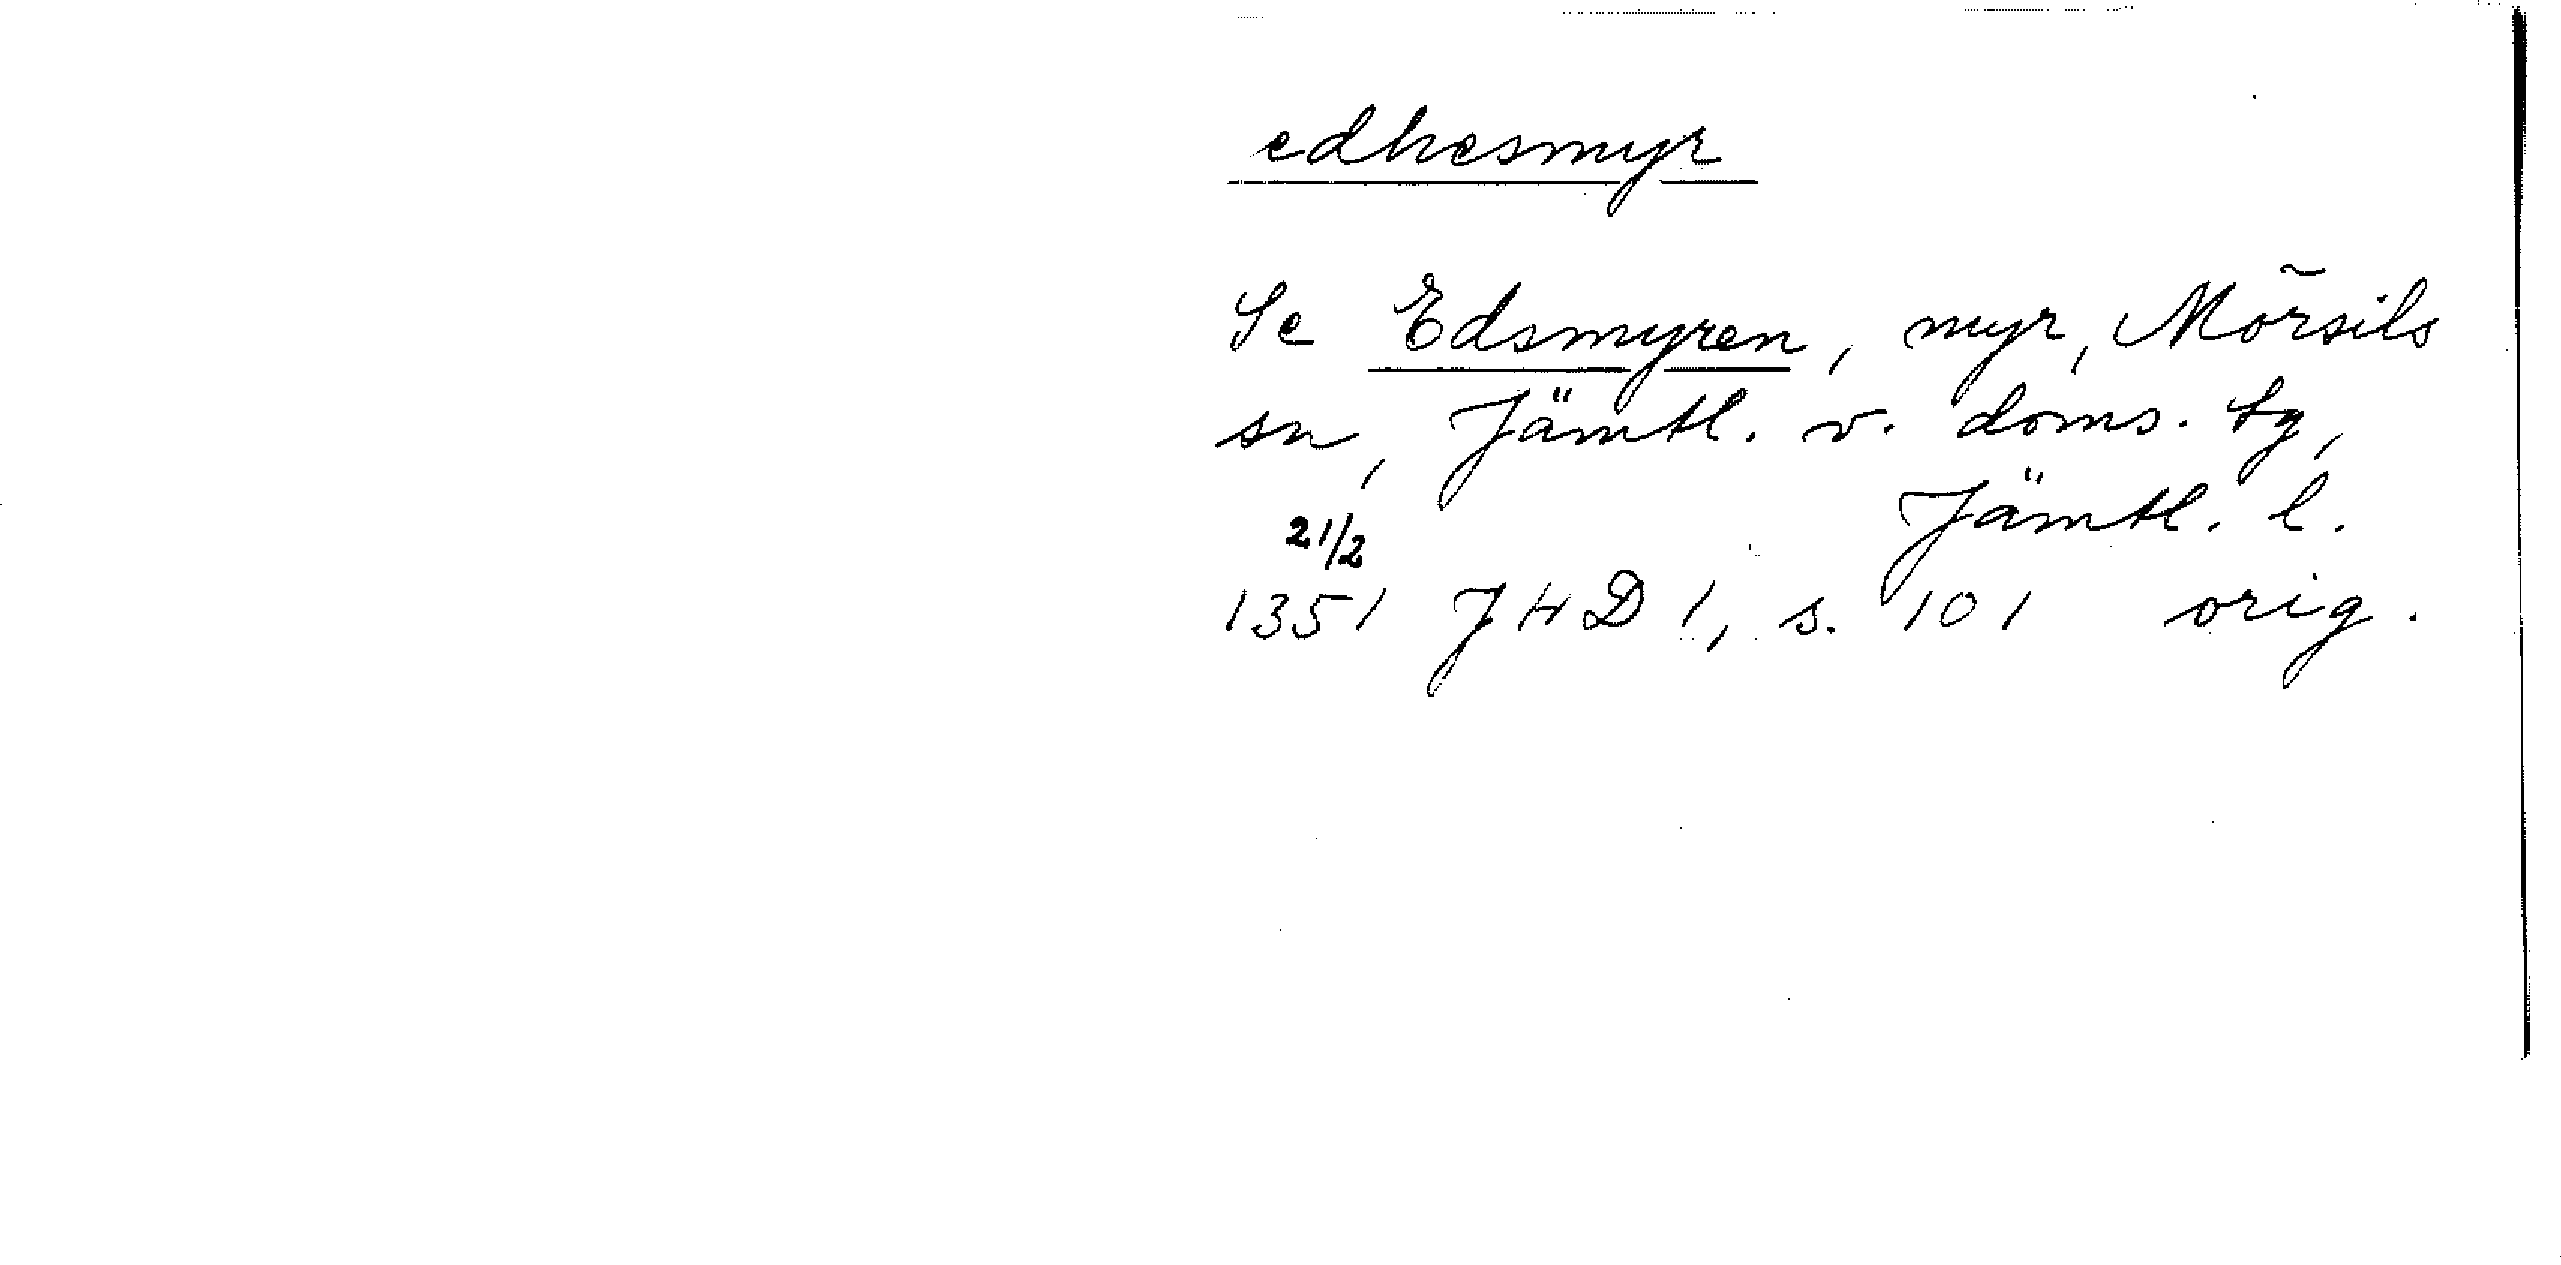 edhesmyr
Se Edsmyren, myr, Mörsils
sn, Jämtl. v. doms. tg,
Jämtl. l.
21/2
1351 JHD 1, s. 101 orig.